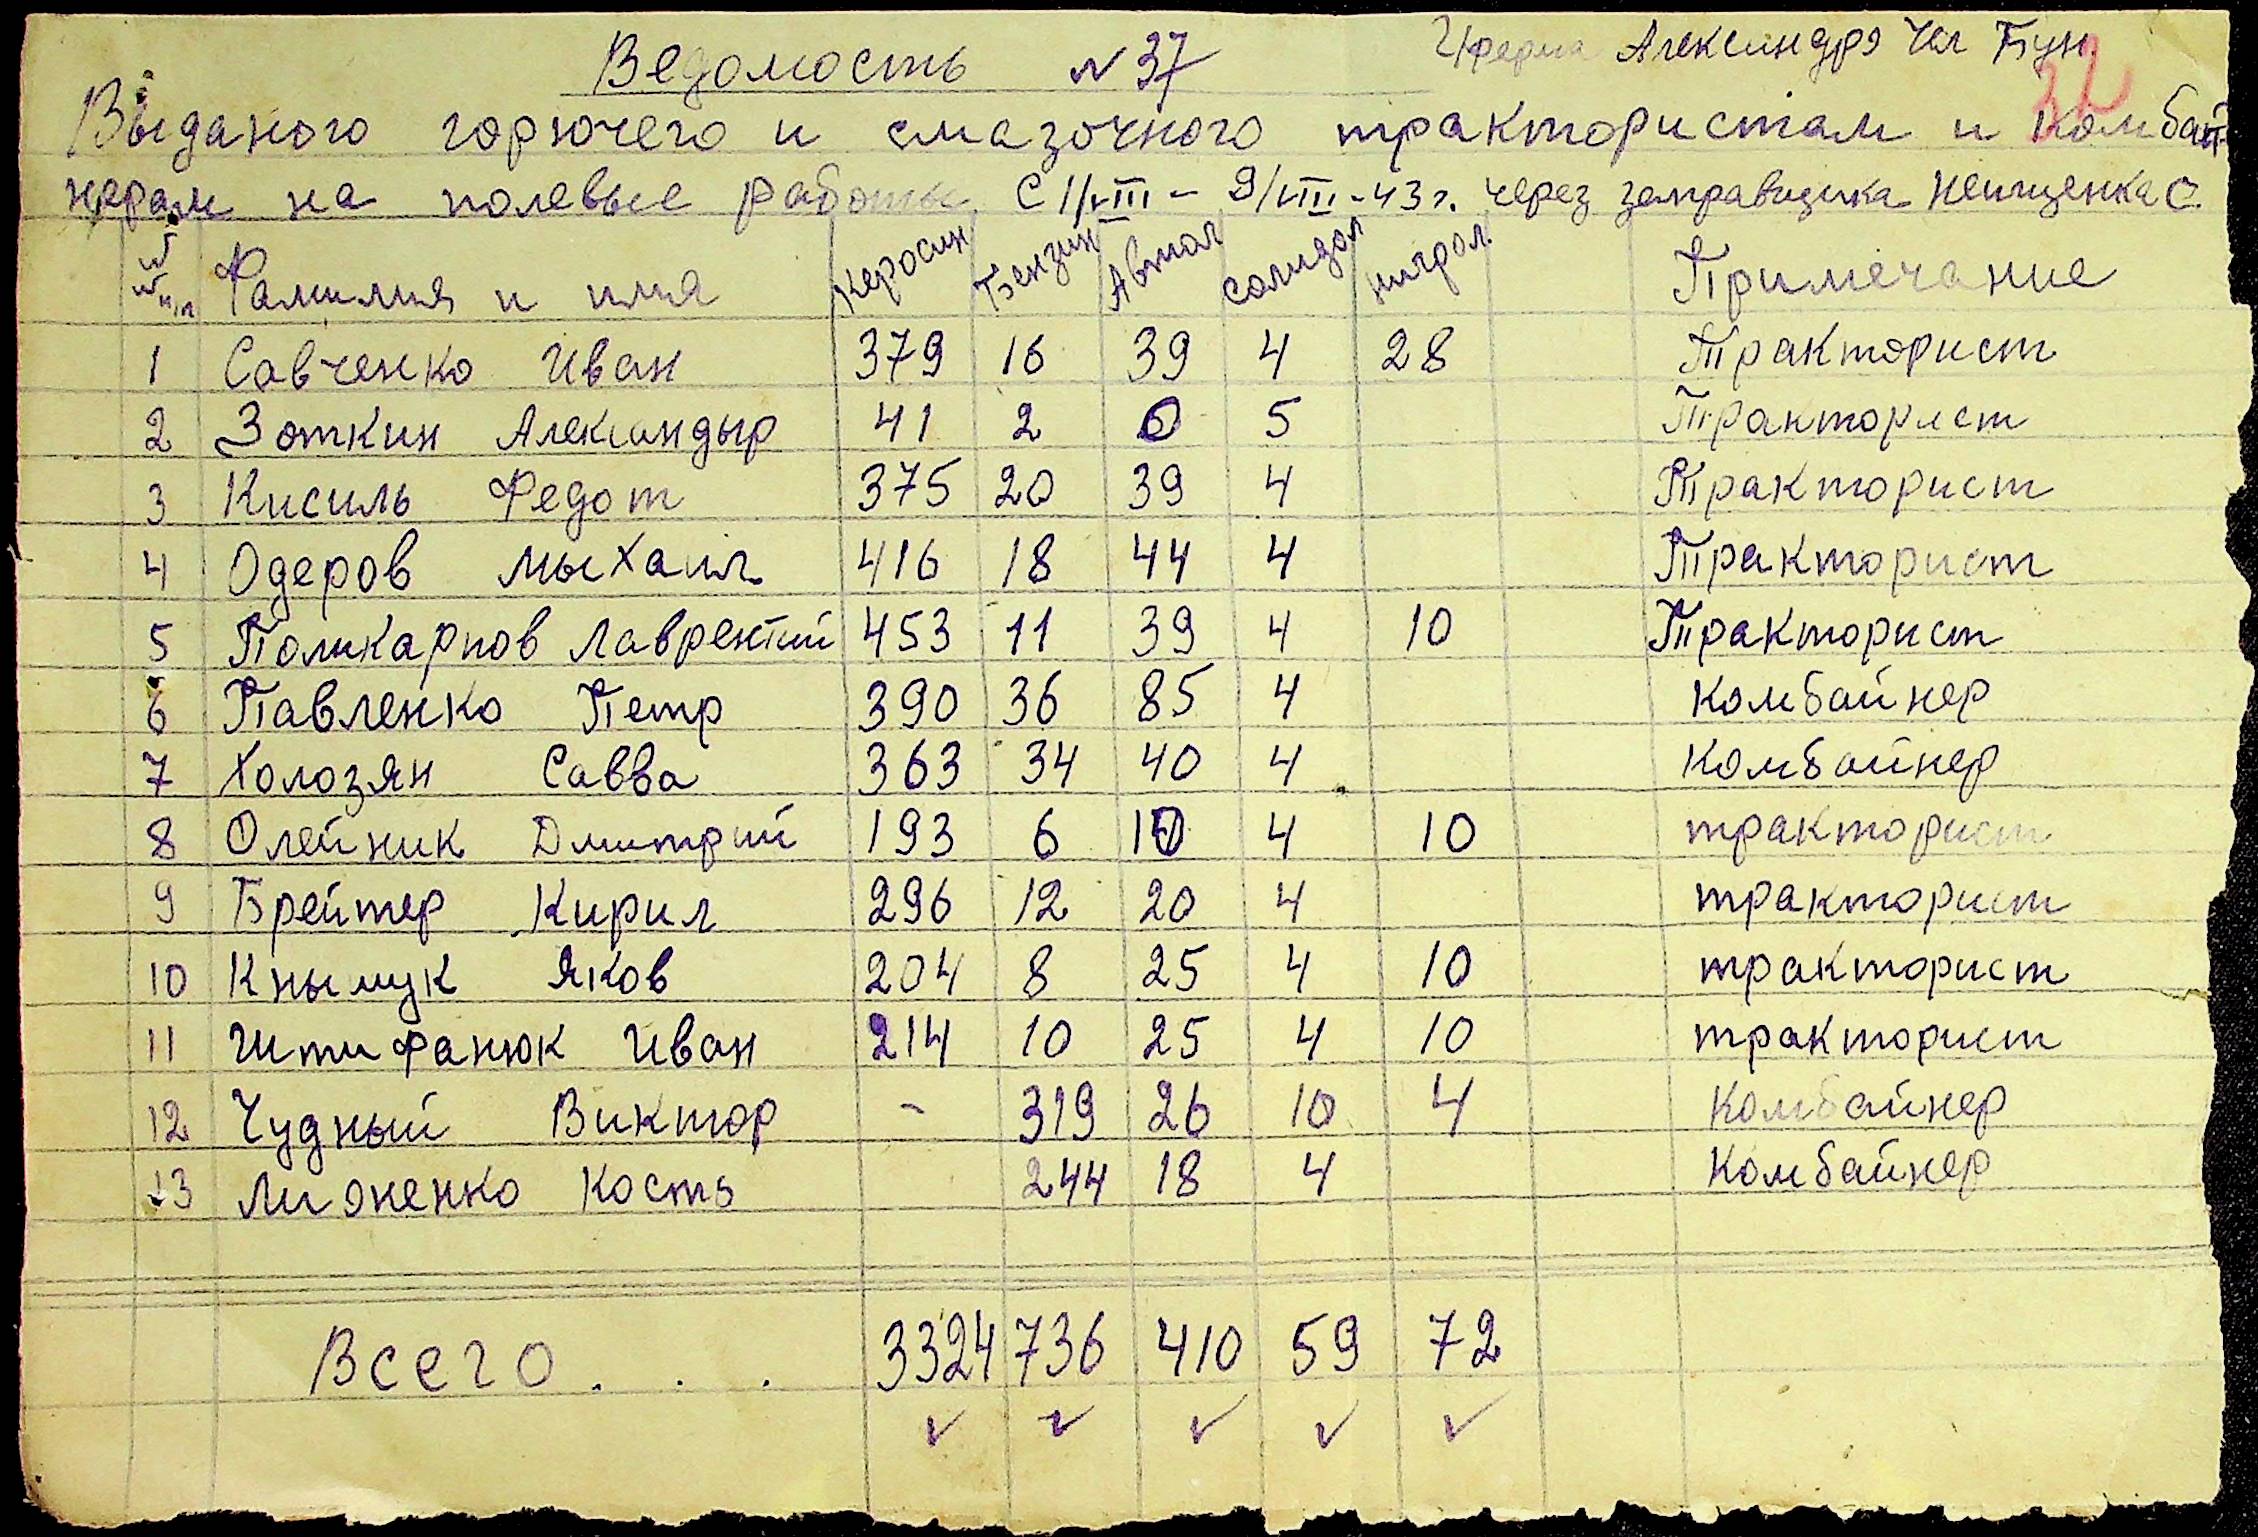 Ферма Александря Чел Бун
Ведомость № 37
32
Выданого горючего и смазочного трактористам и комбай-
нерам на полевые работы С 1/VIII - 9/VIII-43 г. через заправщика Неищенка С.
№№ п/п Фамилия и имя Керосин Бензин Автол Солидол Нигрол Примечание
1 Савченко Иван 379 16 39 4 28 Тракторист
2 Зоткин Александыр 41 2 0 5 Тракторист
3 Кисиль Федот 375 20 39 4 Тракторист
4 Одеров Мыхаил 416 18 44 4 Тракторист
5 Поликарпов Лаврентий 453 11 39 4 10 Тракторист
6 Павленко Петр 390 36 85 4 Комбайнер
7 Холозян Савва 363 34 40 4 Комбайнер
8 Олейник Дмитрий 193 6 10 4 10 тракторист
9 Брейтер Кирил 296 12 20 4 тракторист
10 Кнымук Яков 204 8 25 4 10 тракторист
11 Штифанюк Иван 214 10 25 4 10 тракторист
12 Чудный Виктор - 319 26 10 4 Комбайнер
13 Лияненко Кость 244 18 4 Комбайнер
Всего . . . 3324 736 410 59 72